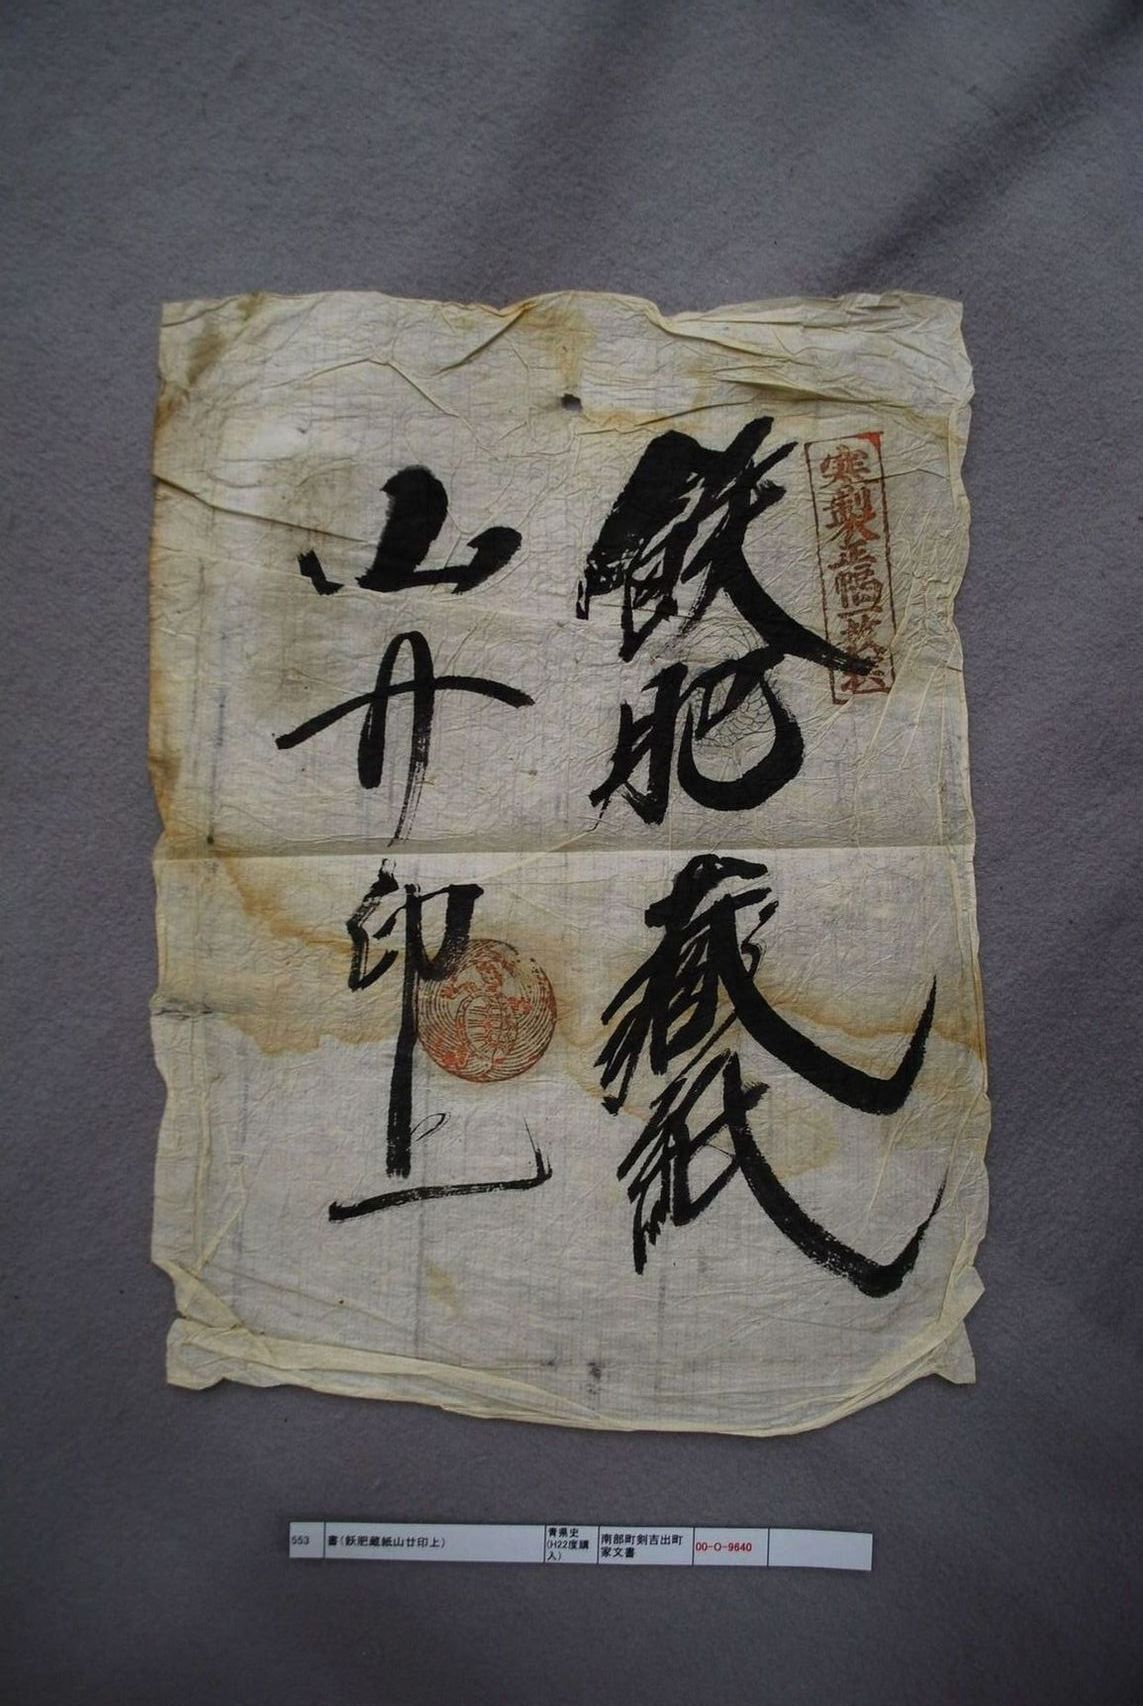 寒製正幅一枚
飫肥蔵紙
山廿印上
553
書(飫肥蔵紙山廿印上)
青県史
(H22度購
入)
南部町剣吉出町
家文書
00-O-9640